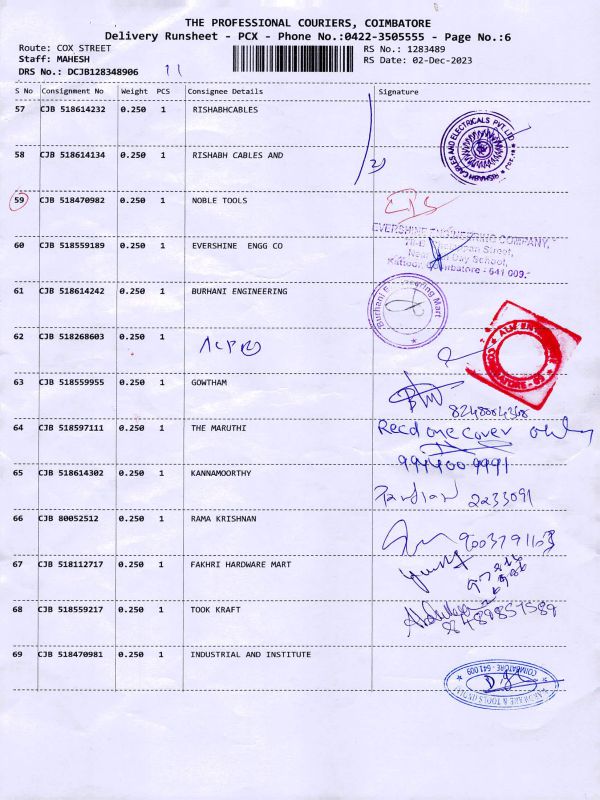 THE PROFESSIONAL COURIERS, COIMBATORE
Delivery Runsheet - PCX - Phone No.:0422-3505555 - Page No.:6
Route: COX STREET RS No.: 1283489
Staff: MAHESH RS Date: 02-Dec-2023
DRS No.: DCJB128348906 11
S No Consignment No Weight PCS Consignee Details Signature
57 CJB 518614232 0.250 1 RISHABHCABLES
RISHABH CABLES AND ELECTRICALS PVT LTD
58 CJB 518614134 0.250 1 RISHABH CABLES AND
59 CJB 518470982 0.250 1 NOBLE TOOLS
EVERSHINE ENGINEERING COMPANY,
60 CJB 518559189 0.250 1 EVERSHINE ENGG CO
Street,
Day School,
Kattoor, Coimbatore - 641 009.
61 CJB 518614242 0.250 1 BURHANI ENGINEERING
Burhani Engineering Mart
62 CJB 518268603 0.250 1
COIMBATORE
63 CJB 518559955 0.250 1 GOWTHAM
64 CJB 518597111 0.250 1 THE MARUTHI Recd one cover only
65 CJB 518614302 0.250 1 KANNAMOORTHY
Pandian 2233091
66 CJB 80052512 0.250 1 RAMA KRISHNAN
67 CJB 518112717 0.250 1 FAKHRI HARDWARE MART
68 CJB 518559217 0.250 1 TOOK KRAFT
69 CJB 518470981 0.250 1 INDUSTRIAL AND INSTITUTE
COIMBATORE - 641 009